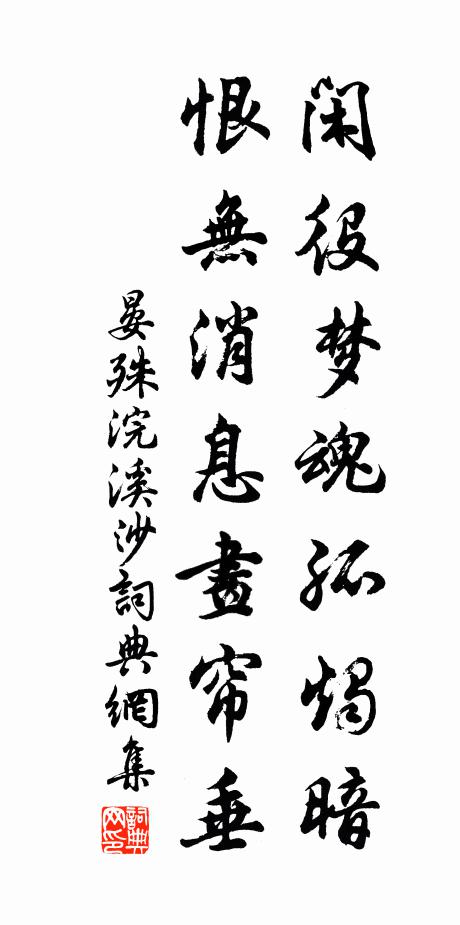 閑役梦魂孤燭暗
恨無消息畫帘垂
晏殊浣溪沙詞典網集
詞典网印